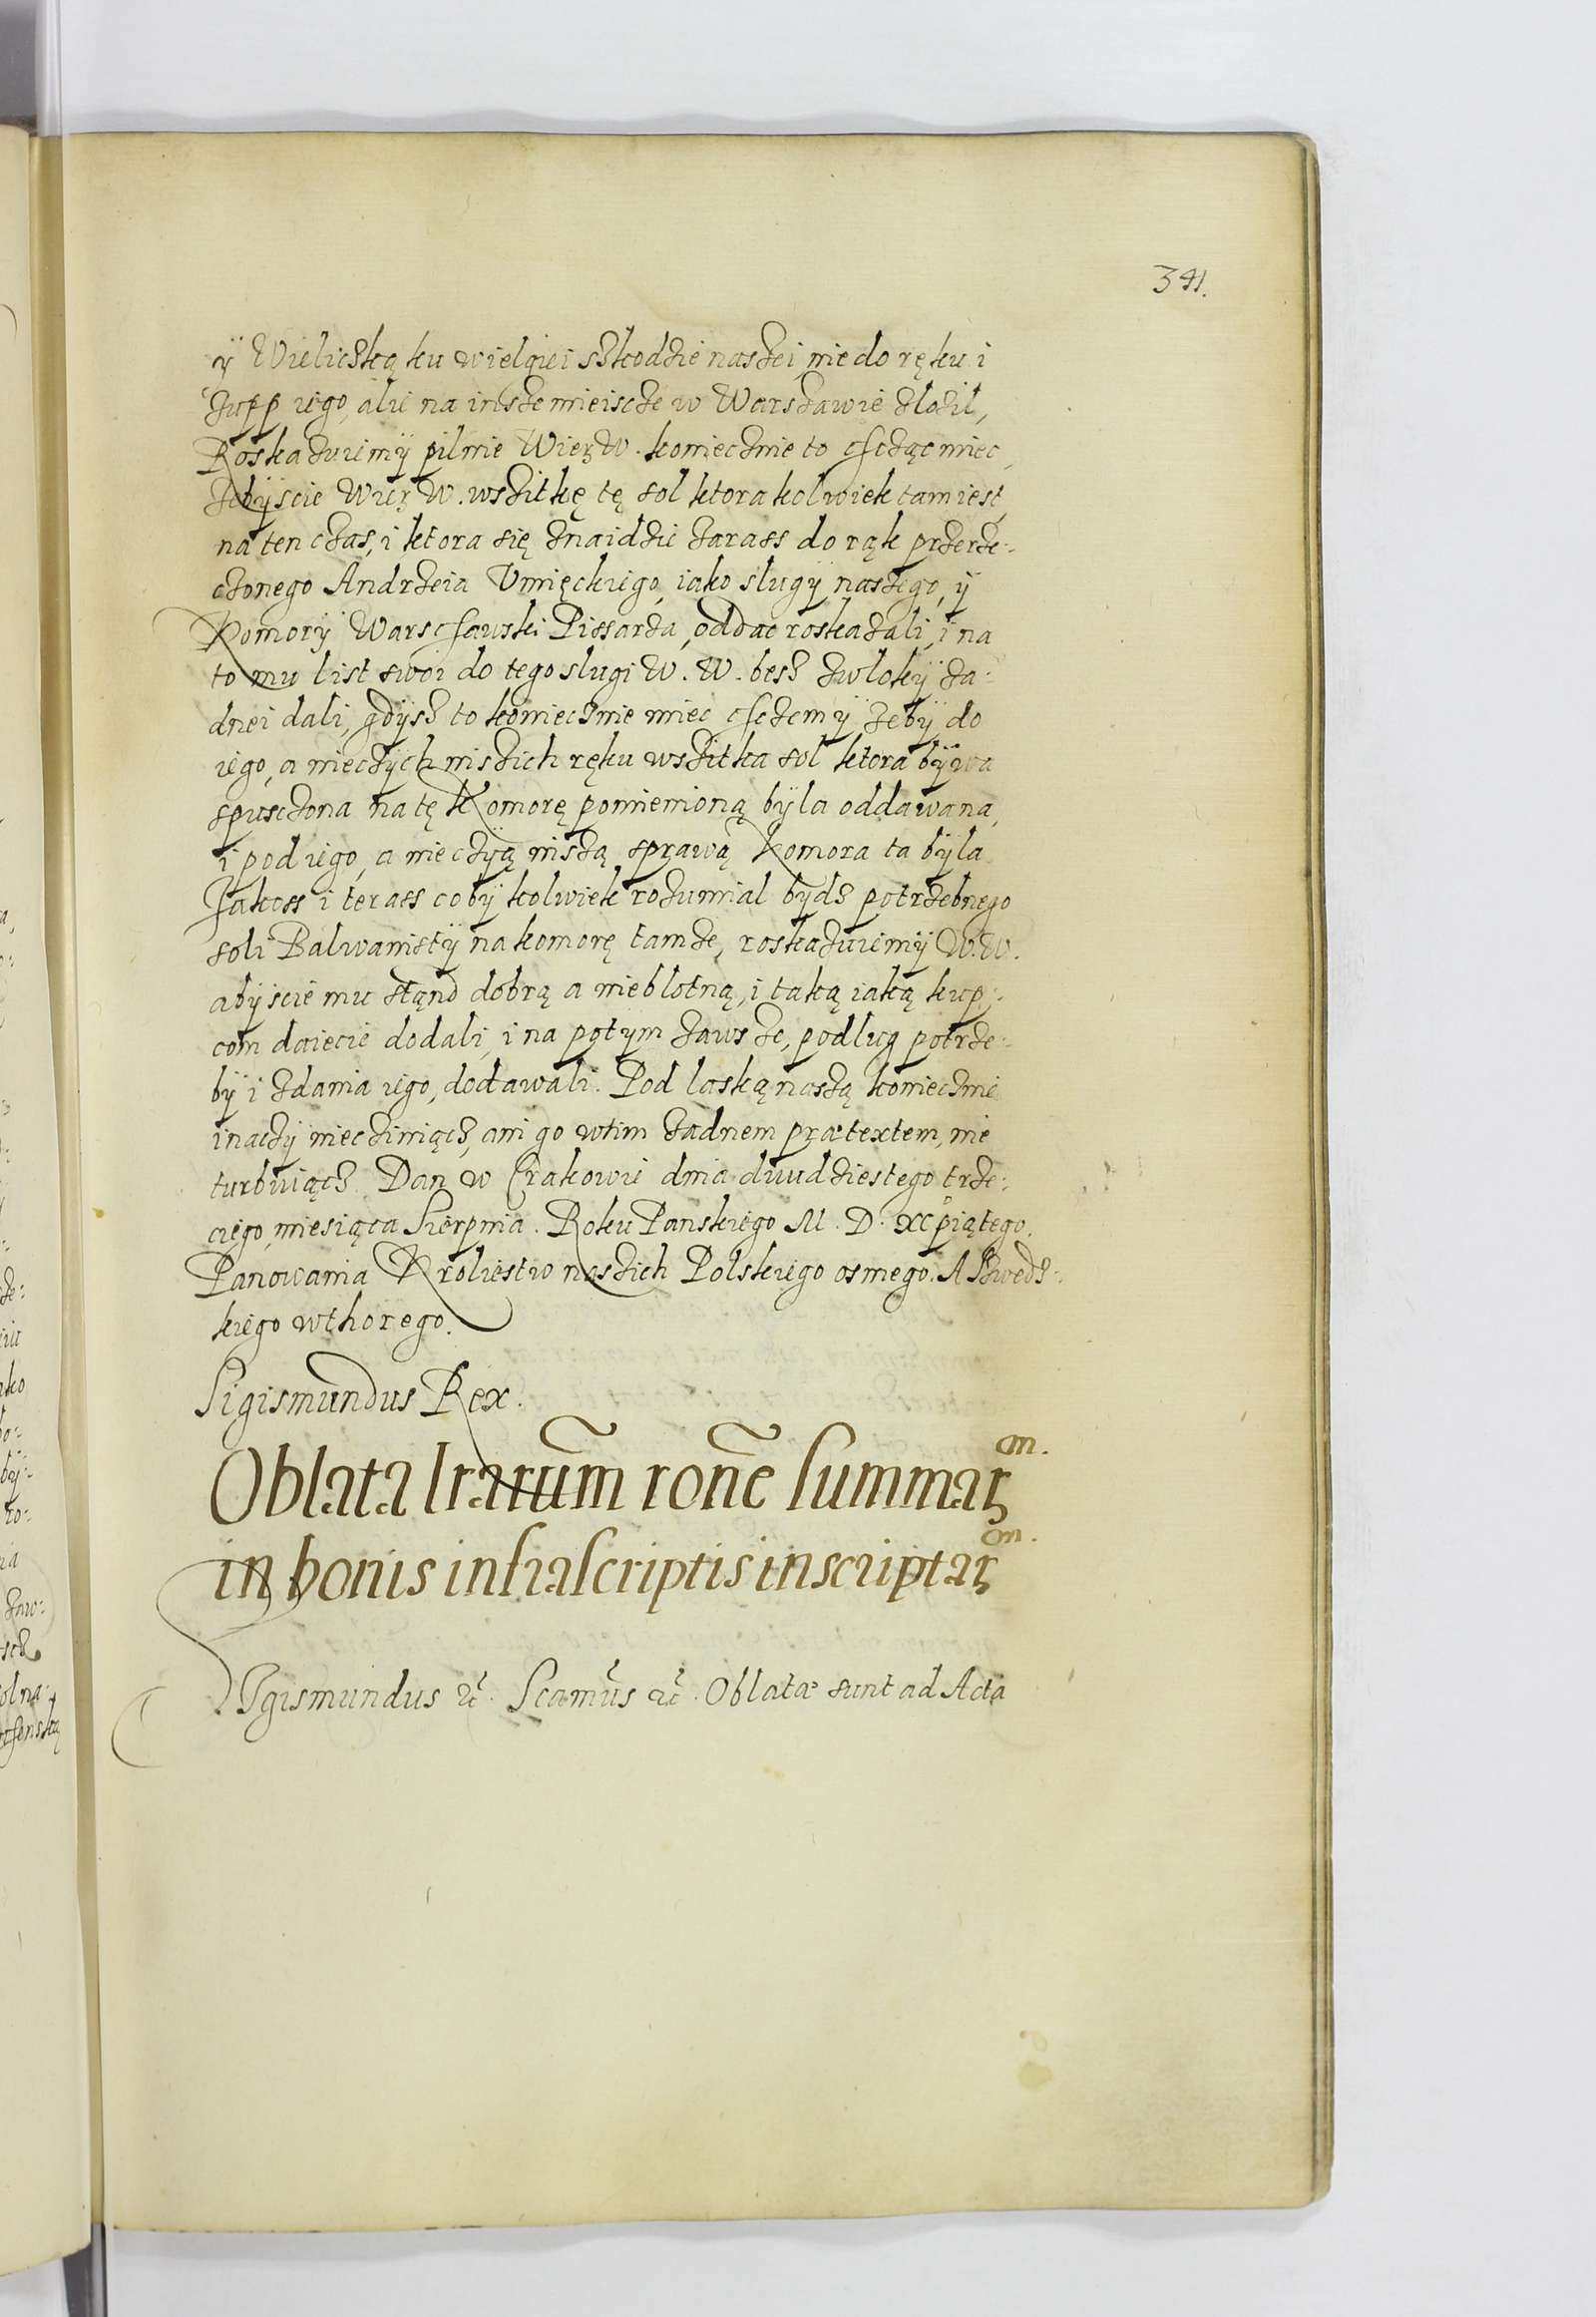 391.
ÿ Wieliczką ku wielgiei szkodzie naszei, nie do ręku i
Zupp iego, alie na insze mieiscze w Warszawie zlozil,
Roskazuiemÿ pilnie Wierz W. koniecznie to chcząc miec,
Zebÿscie Wierz W. wszitkę tę sol ktora kolwiek tam iest,
na ten czas, i ktora się znaidzie zarass do rąk przerze-
czonego Andrzeia Vmięckiego, iako slugÿ naszego, ÿ
Komorÿ Warschauski Pissarza, oddac roskazali, i na
to mu list swoi do tego slugi W. W. besz zwlokÿ za-
dnei dali, gdÿsz to koniecznie miec chczemÿ zebÿ do
iego, a nieczÿch niszich ręku wszitka sol ktora bÿwa
spusczona na tę Komorę pomienioną bÿla oddawana,
i pod iego, a nieczÿą niszą sprawą Komora ta bÿla
Jakoss i terass cobÿ kolwiek rozumial bÿdz potrzebnego
soli Balwanistÿ na komorę tamze, roskazuiemÿ W. W.
abÿscie mu stąnd dobrą a nieblotną, i taką iaką kup-
com daiecie dodali, i na potym zawsze, podlug potrze-
bÿ i zdania iego, dodawali. Pod laską naszą koniecznie
inaczÿ niecziniącz, ani go wtim zadnem prætextem, nie
turbuiącz. Dan w Crakowie dnia dwudziestego trze-
ciego, miesiąca Sierpnia. Roku Panskiego M. D. XC piątego.
Panowania Kroliestw naszich Polskiego osmego. A Szwedz-
kiego wthorego.
Sigismundus Rex.
Oblata lrarum rone summarum
in bonis infrascriptis inscriptarum
Sigismundus etc. Scamus etc. Oblatæ sunt ad Acta